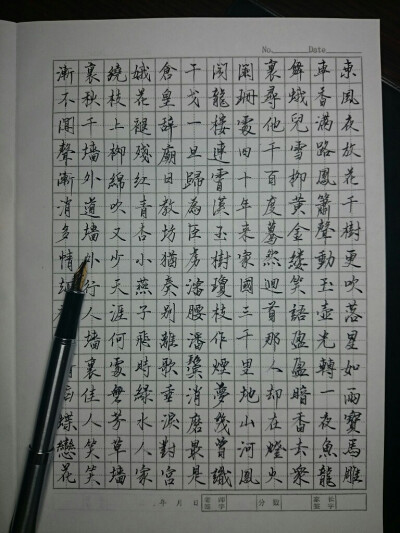 No. Date
東風夜放花千樹更吹落星如雨寶馬雕
車香滿路鳳簫聲動玉壺光轉一夜魚龍
舞蛾兒雪柳黃金縷笑語盈盈暗香去衆
裏尋他千百度驀然迴首那人却在燈火
闌珊處四十年來家國三千里地山河鳳
閣龍樓連霄漢玉樹瓊枝作煙夢幾曾識
干戈一旦歸為臣虜瀋腰潘鬢消磨最是
倉皇辭廟日教坊猶奏別離歌垂淚對宮
娥花褪殘紅青杏小燕子飛時綠水人家
繞枝上柳綿吹又少天涯何處無芳草墻
裏秋千墻外道墻外行人墻裏佳人笑笑
漸不聞聲漸消多情蝶戀花
年 月 日
分數